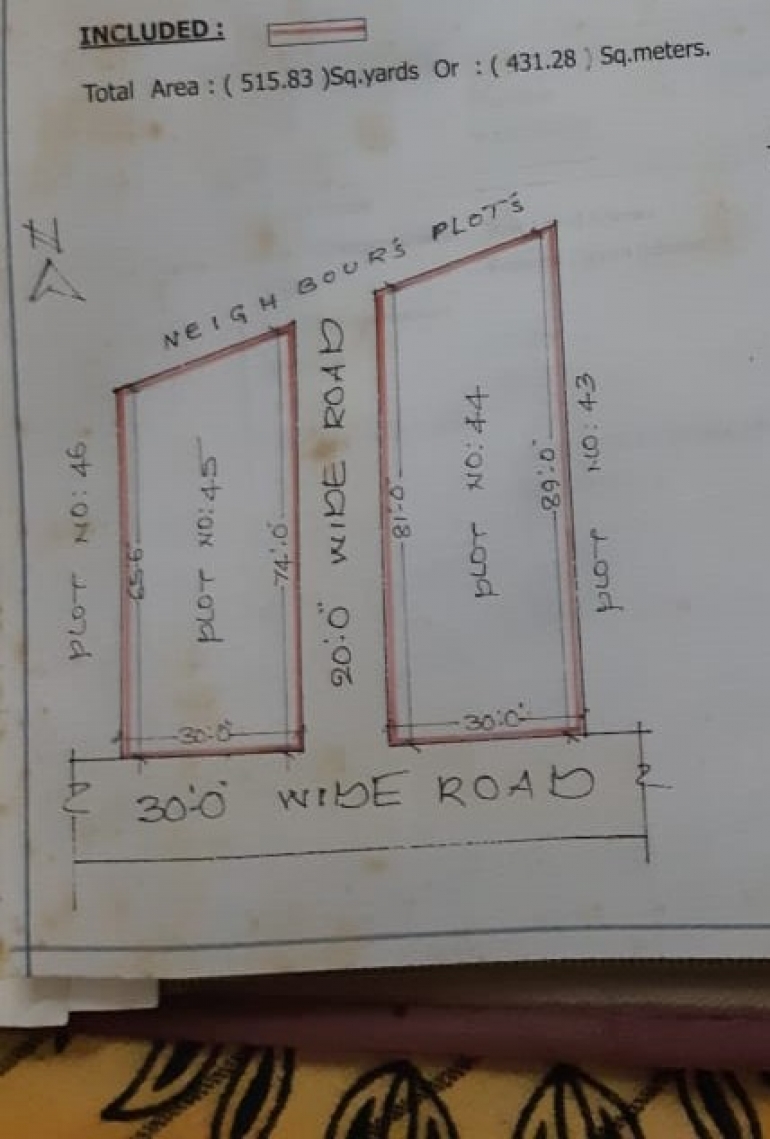 INCLUDED :
Total Area : ( 515.83 )Sq.yards Or : ( 431.28 ) Sq.meters.
N
NEIGHBOURS PLOT'S
PLOT NO: 46
65'6
PLOT NO: 45
74'.0'
20'.0" WIDE ROAD
81'-0'
PLOT NO: 44
89'.0'
PLOT NO: 43
30'.0'
30'.0'
30'.0' WIDE ROAD